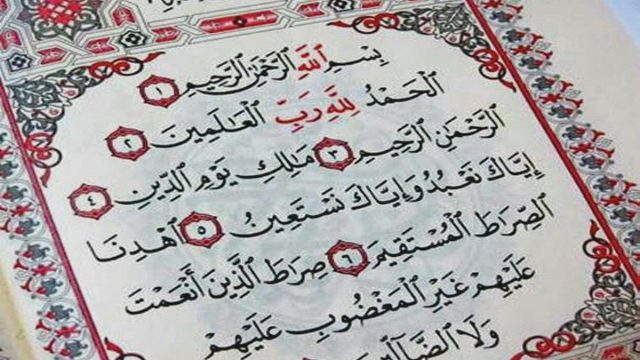 بِسْمِ اللَّهِ الرَّحْمَٰنِ الرَّحِيمِ ١
الْحَمْدُ لِلَّهِ رَبِّ الْعَالَمِينَ ٢
الرَّحْمَٰنِ الرَّحِيمِ ٣ مَٰلِكِ يَوْمِ الدِّينِ ٤
إِيَّاكَ نَعْبُدُ وَإِيَّاكَ نَسْتَعِينُ ٥ اهْدِنَا
الصِّرَاطَ الْمُسْتَقِيمَ ٦ صِرَاطَ الَّذِينَ أَنْعَمْتَ
عَلَيْهِمْ غَيْرِ الْمَغْضُوبِ عَلَيْهِمْ
وَلَا